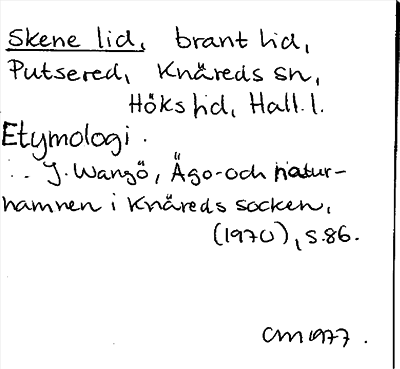 Skene lid, brant lid,
Putsered, Knäreds sn,
Höks hd, Hall. l.
Etymologi.
J. Wangö, Ägo- och natur-
namnen i Knäreds socken,
(1970), s. 86.
CM 1977.